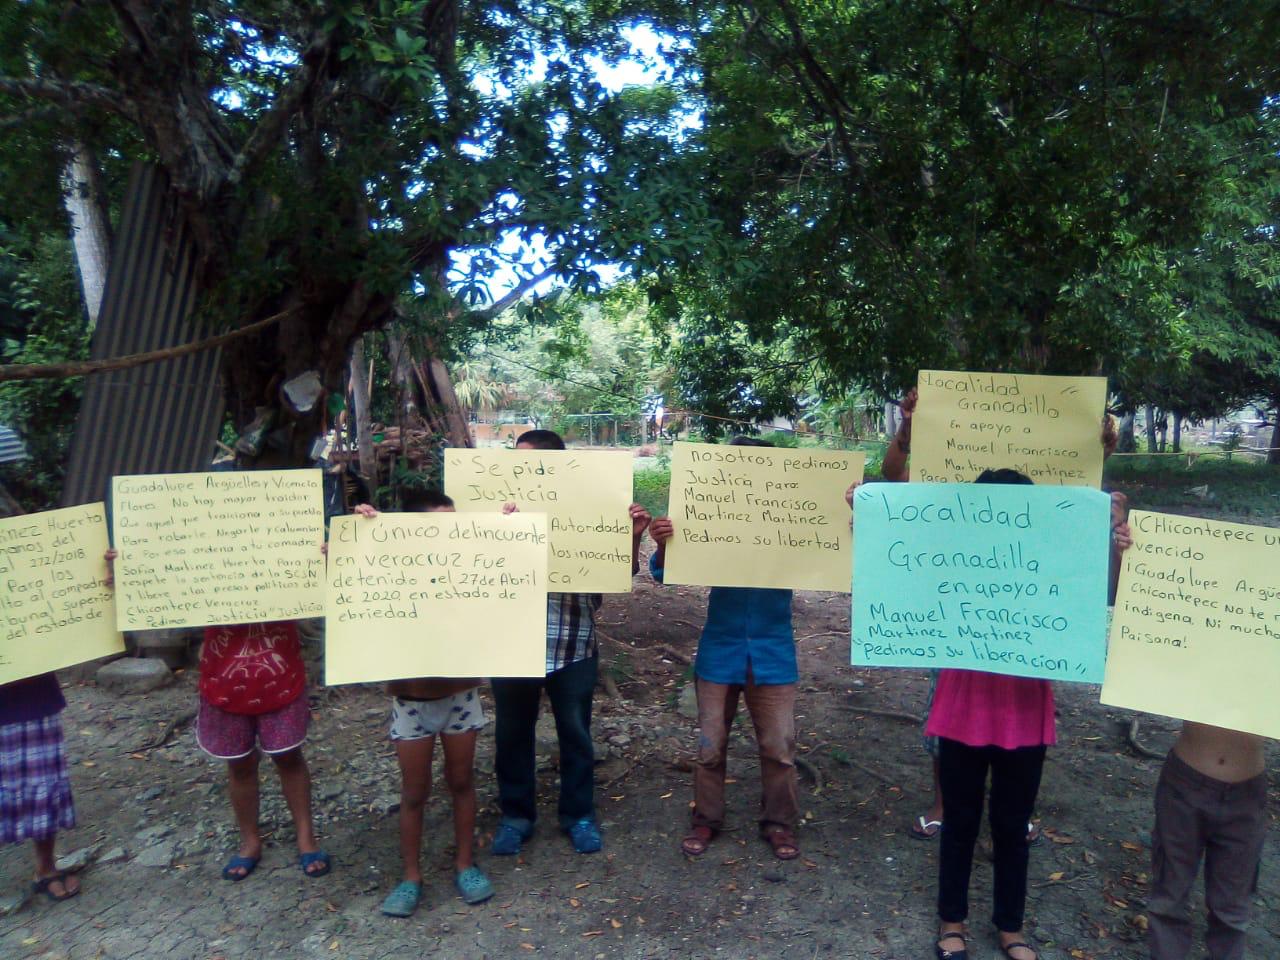 tinez Huerta
manos del
al 272/2018
Para los
lto al compadre
ibunal superior
del estado de
z.
Guadalupe Argüelles y Vicencio
Flores. No hay mayor traidor
Que aquel que traiciona a su pueblo
Para robarle. Negarle y calumniar
le. Por eso ordena a tú comadre
Sofia Martinez Huerta Para que
respete la sentencia de la SCJN
y libere a los presos políticos de
Chicontepec Veracruz
"Pedimos Justicia" Justicia
El único delincuente
en veracruz Fue
detenido el 27 de Abril
de 2020 en estado de
ebriedad
"Se pide"
Justicia
Autoridades
los inocentes
ca"
nosotros pedimos
Justicia para:
Manuel Francisco
Martinez Martinez
Pedimos su libertad
"Localidad "
Granadillo
En apoyo a
Manuel Francisco
Martinez Martinez
"Localidad "
Granadilla
en apoyo A
Manuel Francisco
Martinez Martinez
"pedimos su liberacion"
¡CHicontepec
vencido
¡Guadalupe
Chicontepec No te
indigena. Ni
Paisana!